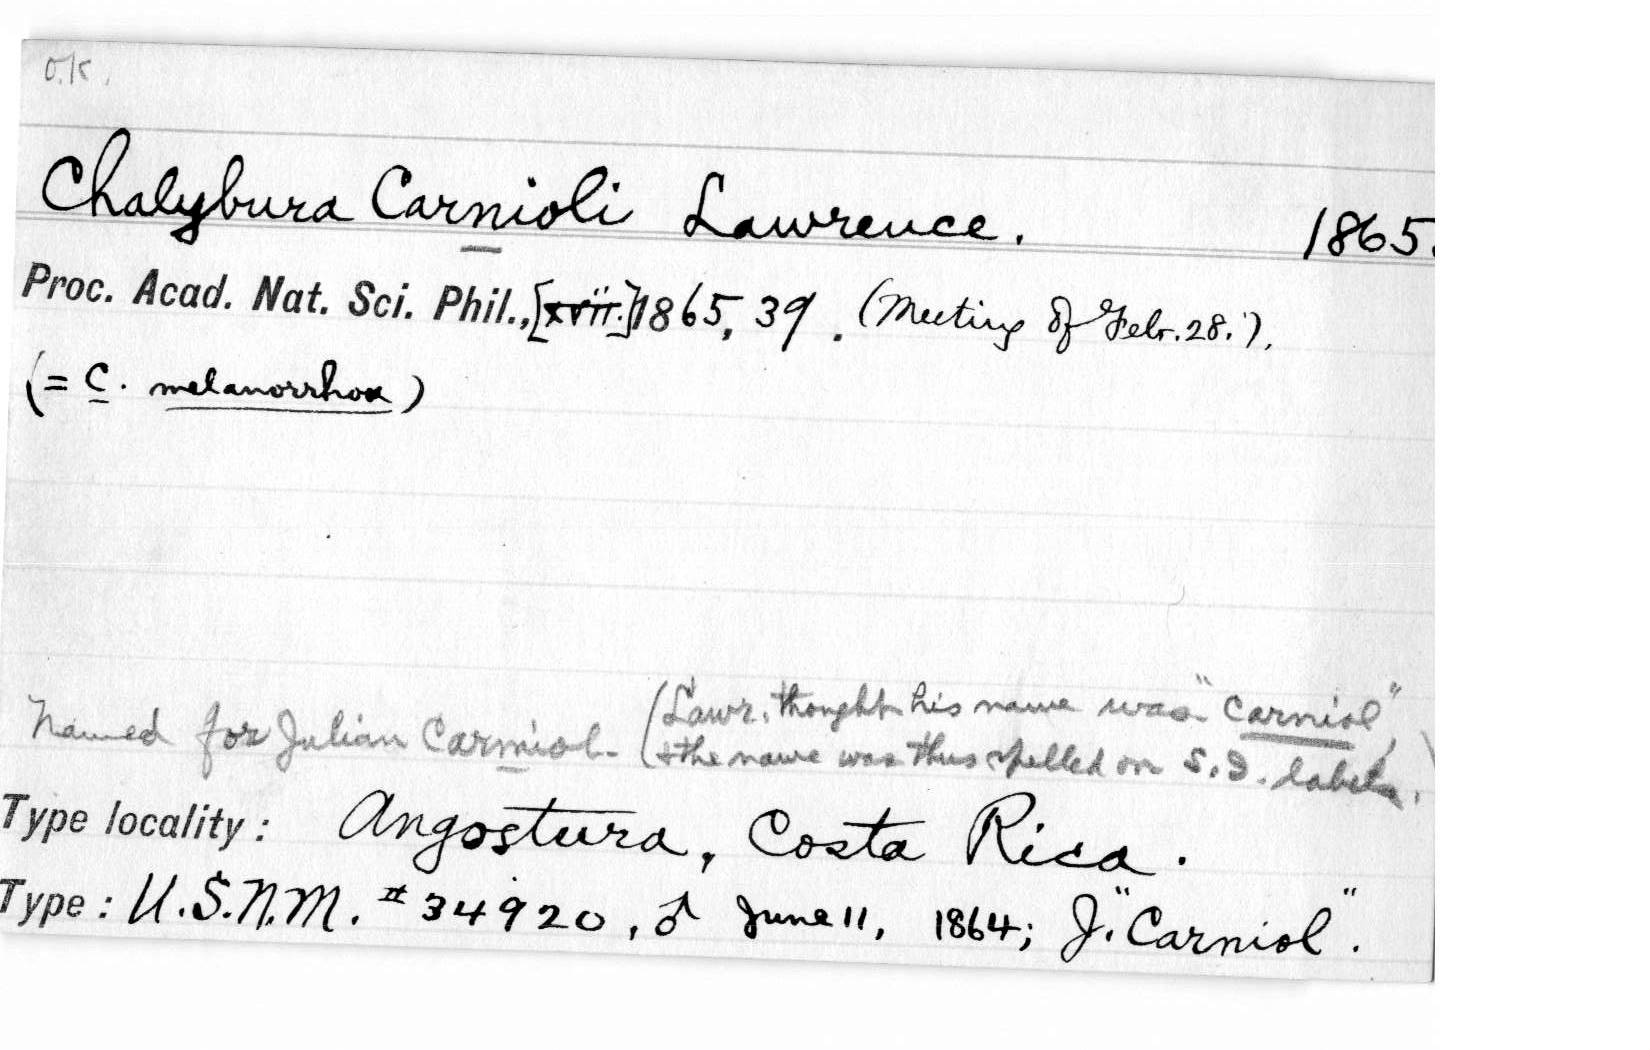 O.K.
Chalybura Carnioli Lawrence. 1865.
Proc. Acad. Nat. Sci. Phil., [xvii.] 1865, 39. (Meeting of Febr. 28.).
(= C. melanorrhoa)
Named for Julian Carmiol. (Lawr. thought his name was "Carniol",
& the name was thus spelled on S.I. labels.)
Type locality: Angostura, Costa Rica.
Type: U.S.N.M. # 34920, ♂ June 11, 1864; J. "Carniol".